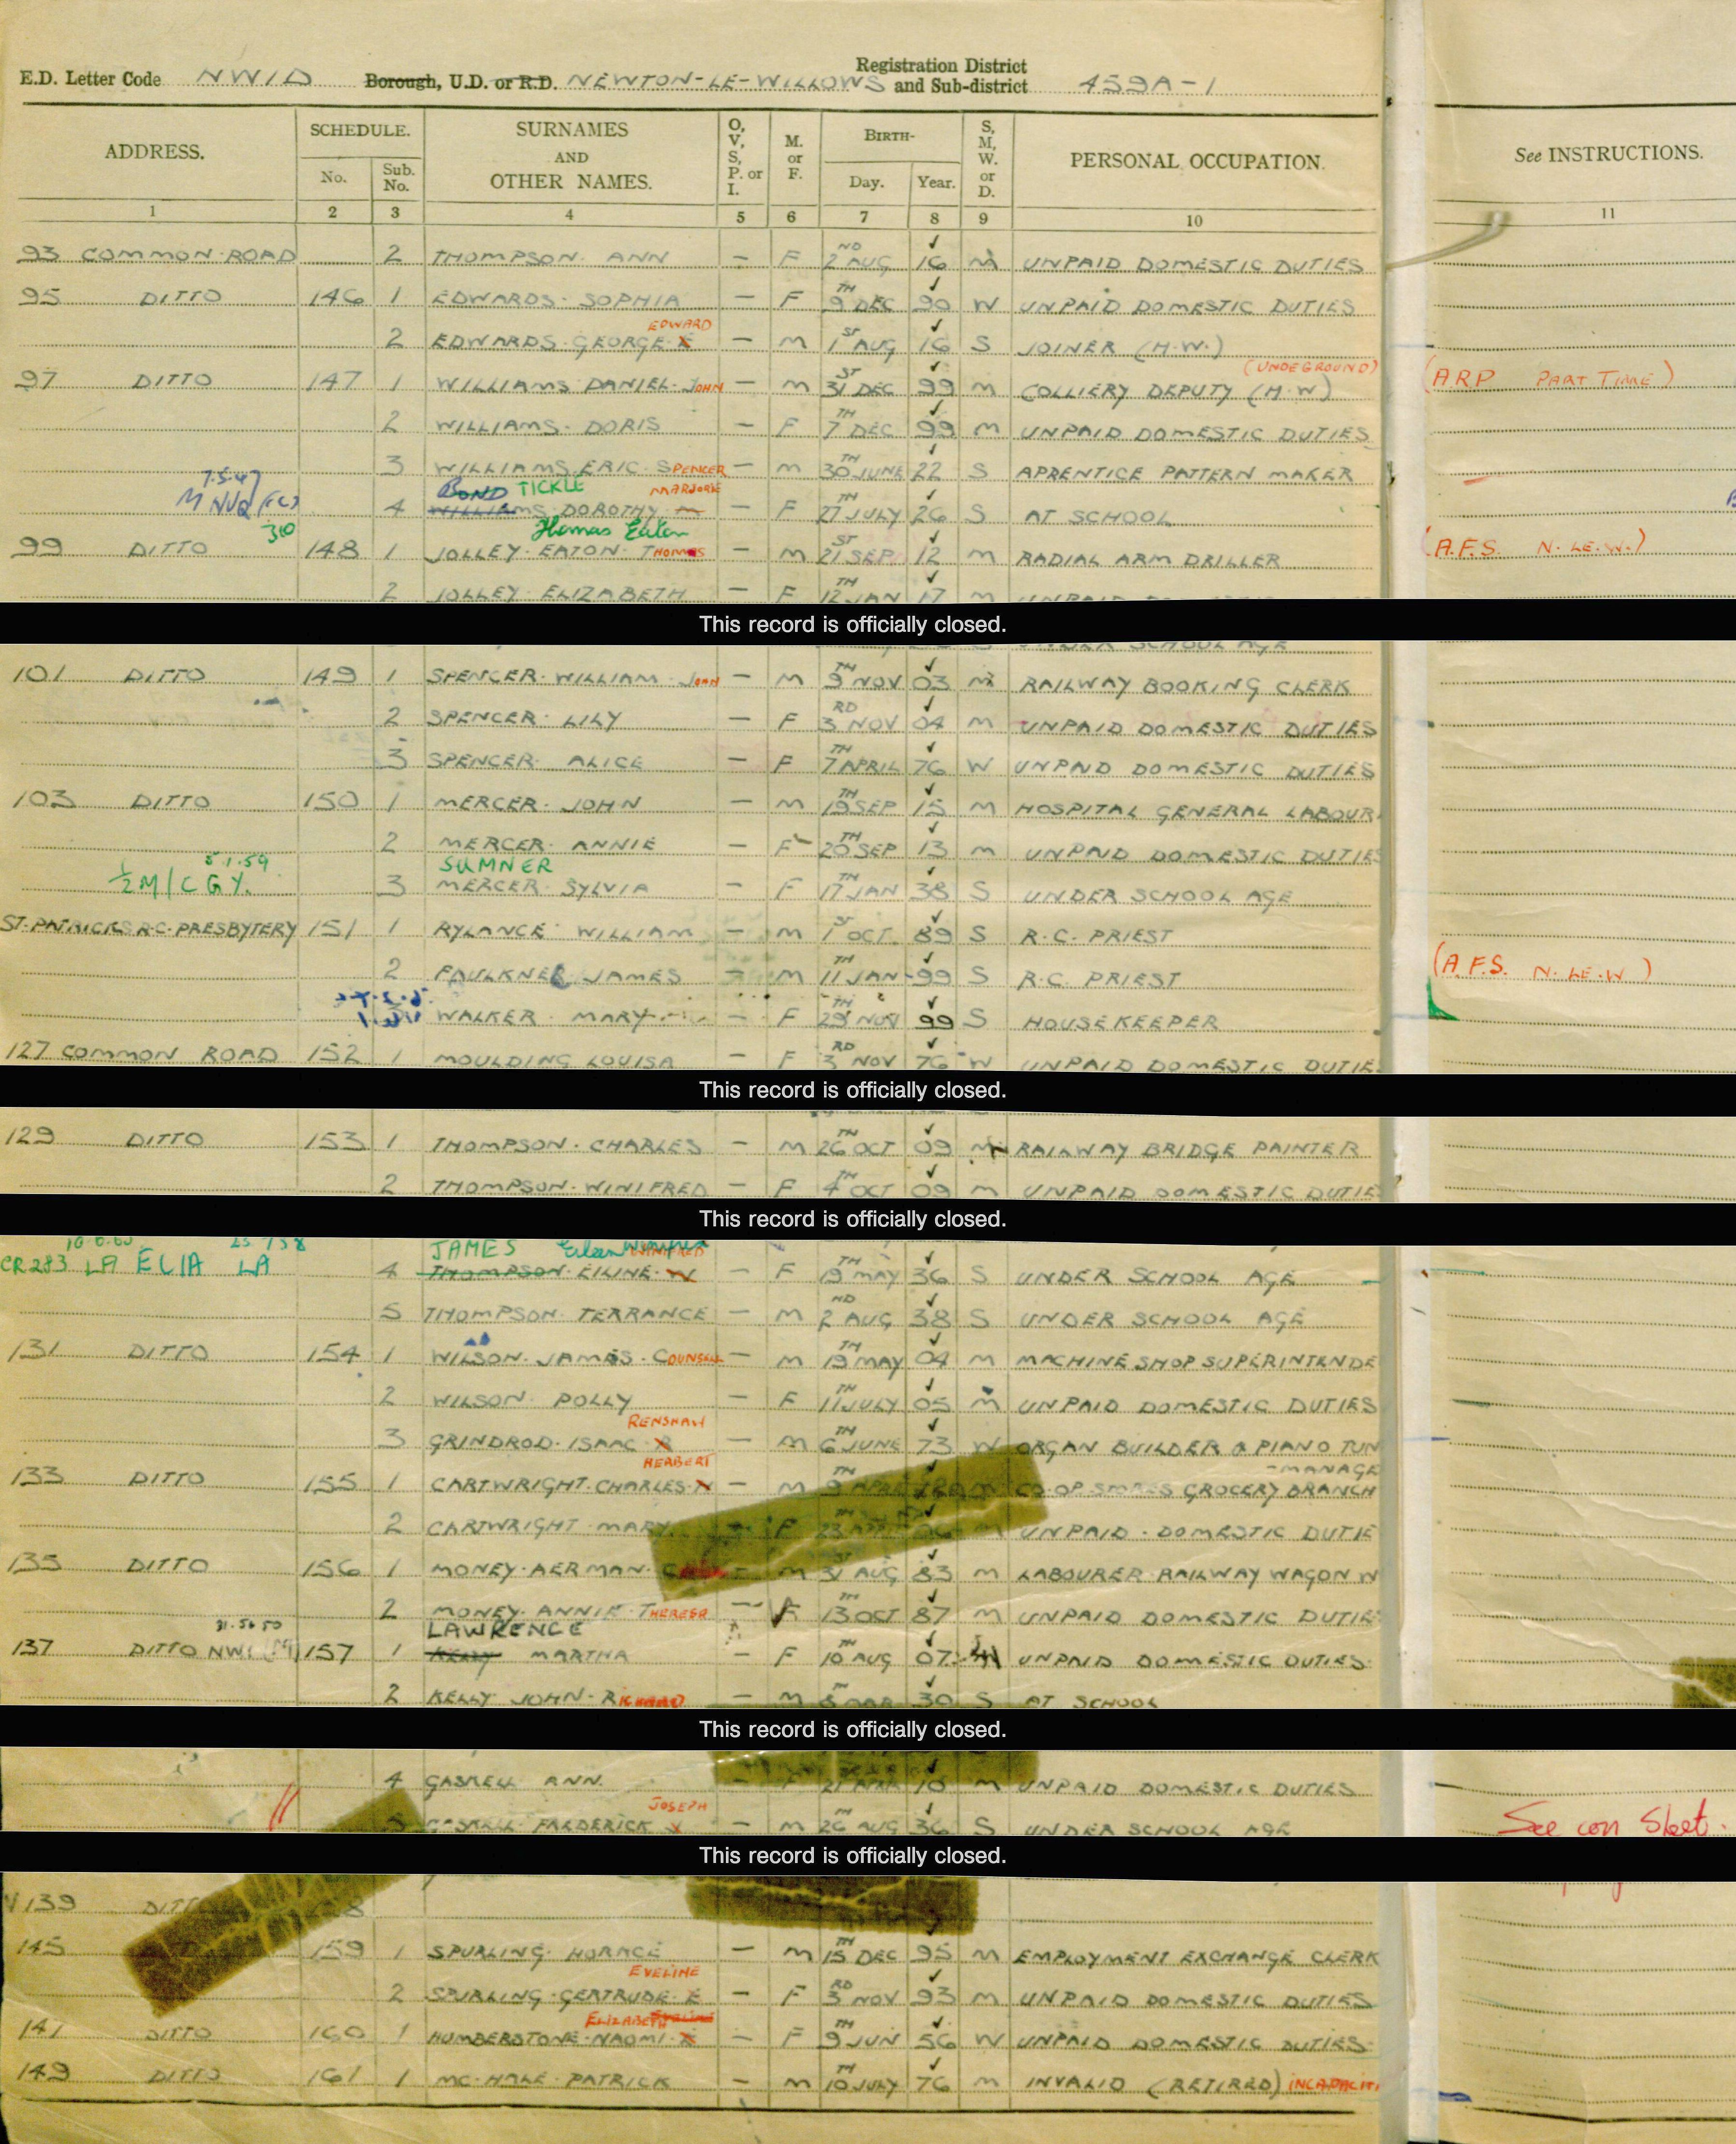 E.D. Letter Code NWID Borough, U.D. or R.D. NEWTON-LE-WILLOWS Registration District and Sub-district 459A-1
ADDRESS. SCHEDULE. No. Sub. No. SURNAMES AND OTHER NAMES. O, V, S, P. or I. M. or F. BIRTH- Day. Year. S, M, W. or D. PERSONAL OCCUPATION. See INSTRUCTIONS.
1 2 3 4 5 6 7 8 9 10 11
93 COMMON ROAD 2 THOMPSON. ANN — F 2ND AUG 16 M UNPAID DOMESTIC DUTIES
95 DITTO 146 1 EDWARDS. SOPHIA — F 9TH DEC 90 W UNPAID DOMESTIC DUTIES
EDWARD
2 EDWARDS. GEORGE. E — M 1ST AUG 16 S JOINER (H.W.)
(UNDEGROUND)
97 DITTO 147 1 WILLIAMS. DANIEL. JOHN — M 31ST DEC 99 M COLLIERY DEPUTY (H.W) (ARP PART TIME)
2 WILLIAMS. DORIS — F 7TH DEC 99 M UNPAID DOMESTIC DUTIES
3 WILLIAMS. ERIC. SPENCER — M 30TH JUNE 22 S APRENTICE PATTERN MAKER
7.5.47 BOND TICKLE MARJORIE
4 WILLIAMS DOROTHY M — F 27TH JULY 26 S AT SCHOOL
310 Thomas Eaton
99 DITTO 148 1 JOLLEY. EATON. THOMAS — M 21ST SEP 12 M RADIAL ARM DRILLER (A.F.S. N. LE. W.)
2 JOLLEY. ELIZABETH — F 12TH JAN 17 M UNPAID
This record is officially closed.
UNDER SCHOOL AGE
101 DITTO 149 1 SPENCER. WILLIAM. JOHN — M 9TH NOV 03 M RAILWAY BOOKING CLERK
2 SPENCER. LILY — F 3RD NOV 04 M UNPAID DOMESTIC DUTIES
3 SPENCER. ALICE — F 7TH APRIL 76 W UNPAID DOMESTIC DUTIES
103 DITTO 150 1 MERCER. JOHN — M 19TH SEP 15 M HOSPITAL GENERAL LABOUR
2 MERCER. ANNIE — F 20TH SEP 13 M UNPAID DOMESTIC DUTIES
5.1.59 SUMNER
½M/C G Y. 3 MERCER. SYLVIA — F 17TH JAN 38 S UNDER SCHOOL AGE
ST. PATRICKS R.C. PRESBYTERY 151 1 RYLANCE WILLIAM — M 1ST OCT. 89 S R.C. PRIEST
2 FAULKNER JAMES — M 11TH JAN 99 S R.C. PRIEST (A.F.S. N. LE. W)
WALKER. MARY — F 29TH NOV 99 S HOUSEKEEPER
127 COMMON ROAD 152 1 MOULDING LOUISA — F 3RD NOV 76 W UNPAID DOMESTIC DUTIE
This record is officially closed.
129 DITTO 153 1 THOMPSON. CHARLES — M 26TH OCT 09 M RAILWAY BRIDGE PAINTER
2 THOMPSON. WINIFRED — F 4TH OCT 09 M UNPAID DOMESTIC DUTIE
This record is officially closed.
JAMES Eileen Winifred
CR283 LA ELIA LA 4 THOMPSON. EILINE. W — F 19TH MAY 36 S UNDER SCHOOL AGE
5 THOMPSON. TERRANCE — M 2ND AUG 38 S UNDER SCHOOL AGE
131 DITTO 154 1 WILSON. JAMES. COUNSELL — M 19TH MAY 04 M MACHINE SHOP SUPERINTENDE
2 WILSON POLLY — F 11TH JULY 05 M UNPAID DOMESTIC DUTIES
RENSHAW
3 GRINDROD. ISAAC. R — M 6TH JUNE 73 W ORGAN BUILDER & PIANO TUN
HERBERT MANAGE
133 DITTO 155 1 CARTWRIGHT. CHARLES. H — M 9TH APRIL CO-OP STORES GROCERY BRANCH
2 CARTWRIGHT. MARY F 23 UNPAID. DOMESTIC DUTIE
135 DITTO 156 1 MONEY. AERMAN. M 31ST AUG 83 M LABOURER RAILWAY WAGON W
2 MONEY. ANNIE. THERESA — F 13TH OCT 87 M UNPAID DOMESTIC DUTIE
LAWRENCE
137 DITTO 157 1 KELLY MARTHA — F 10TH AUG 07 UNPAID DOMESTIC DUTIES.
2 KELLY JOHN. RICHARD — M 8TH MAR 30 S AT SCHOOL
This record is officially closed.
4 GASKELL ANN. — F 21 MAR 10 M UNPAID DOMESTIC DUTIES
JOSEPH
5 GASKELL FREDERICK J — M 26TH AUG 36 S UNDER SCHOOL AGE See con Sheet.
This record is officially closed.
139 DITTO
145 159 1 SPURLING. HORACE — M 15TH DEC 95 M EMPLOYMENT EXCHANGE CLERK
EVELINE
2 SPURLING. GERTRUDE. E — F 3RD NOV 93 M UNPAID DOMESTIC DUTIES
ELIZABETH
141 DITTO 160 1 HUMBERSTONE. NAOMI. E — F 9TH JUN 56 W UNPAID DOMESTIC DUTIES.
149 DITTO 161 1 MC. HALE. PATRICK — M 10TH JULY 76 M INVALID (RETIRED) INCAPACIT